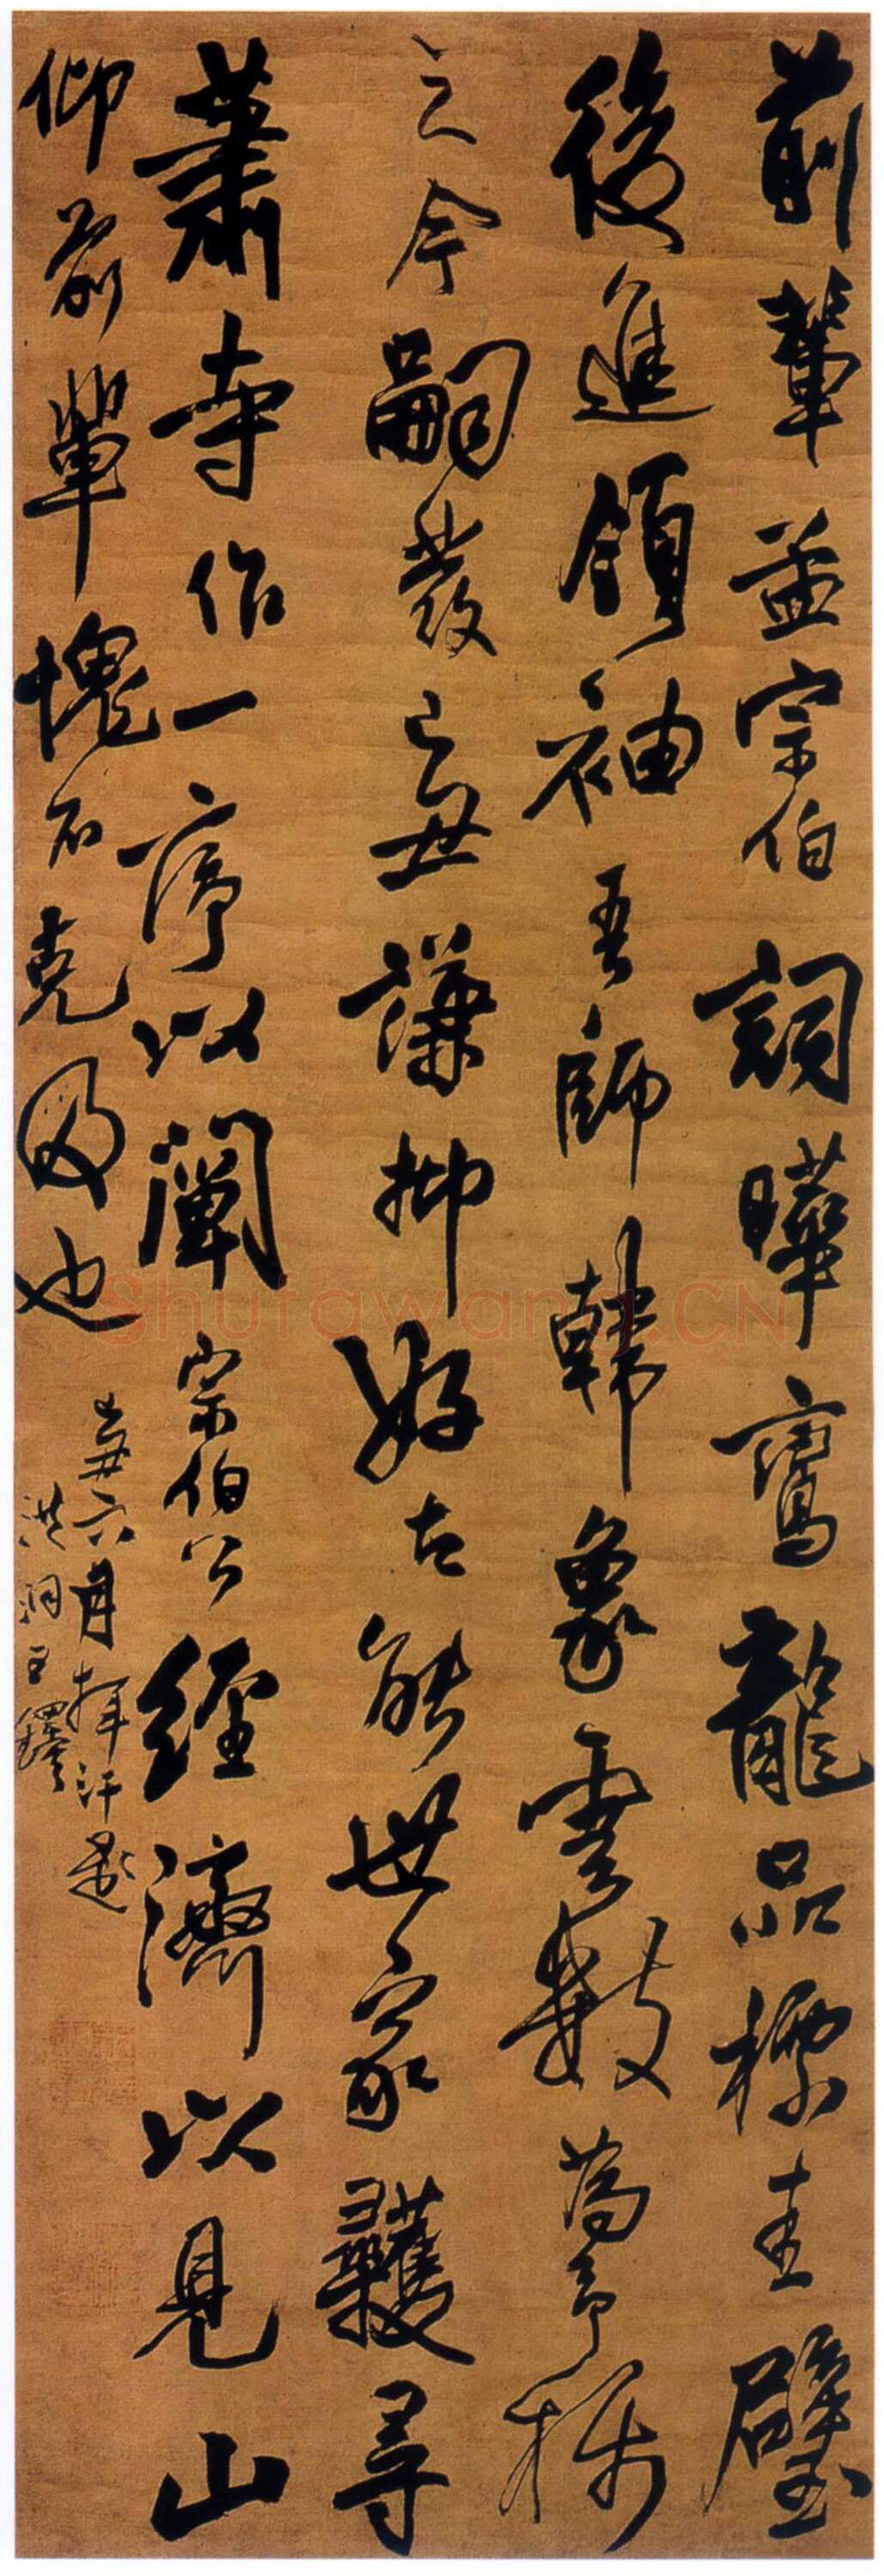 前輩孟宗伯詞曄鸞龍品標圭璧
後進領袖吾師韓象雲數為予稱
之今嗣發已丑謙抑好古能世家彠尋
蕭寺作一序以闡宗伯公經濟以見山
仰前輩愧不克及也
丑六月揮汗題
洪洞王鐸
Shufawang.CN